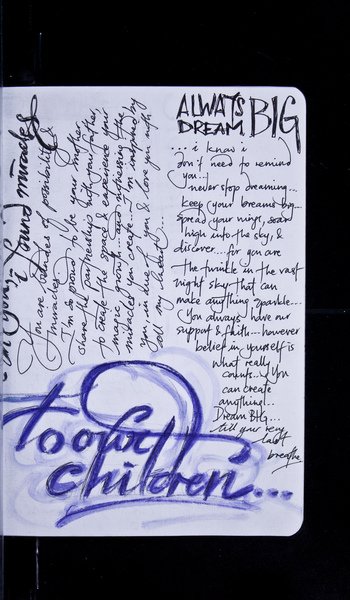 ALWAYS
DREAM BIG
... i know i
don't need to remind
you...
never stop dreaming...
keep your dreams big...
spread your wings, soar
high into the sky, &
discover... for you are
the twinkle in the vast
night sky that can
make anything sparkle...
You always have our
support & faith... however
belief in yourself is
what really
counts... You
can create
anything!...
Dream BIG...
till your very
last
breathe
i found miracles
You are bundles of possibility &
miracles
I'm so proud to be your mother,
share the partnership with your father,
to create the space & experience your
magic, growth... and witnessing the
miracles you create... I'm inspired by
you, in love by you & love you with
all my heart...
to our
children...